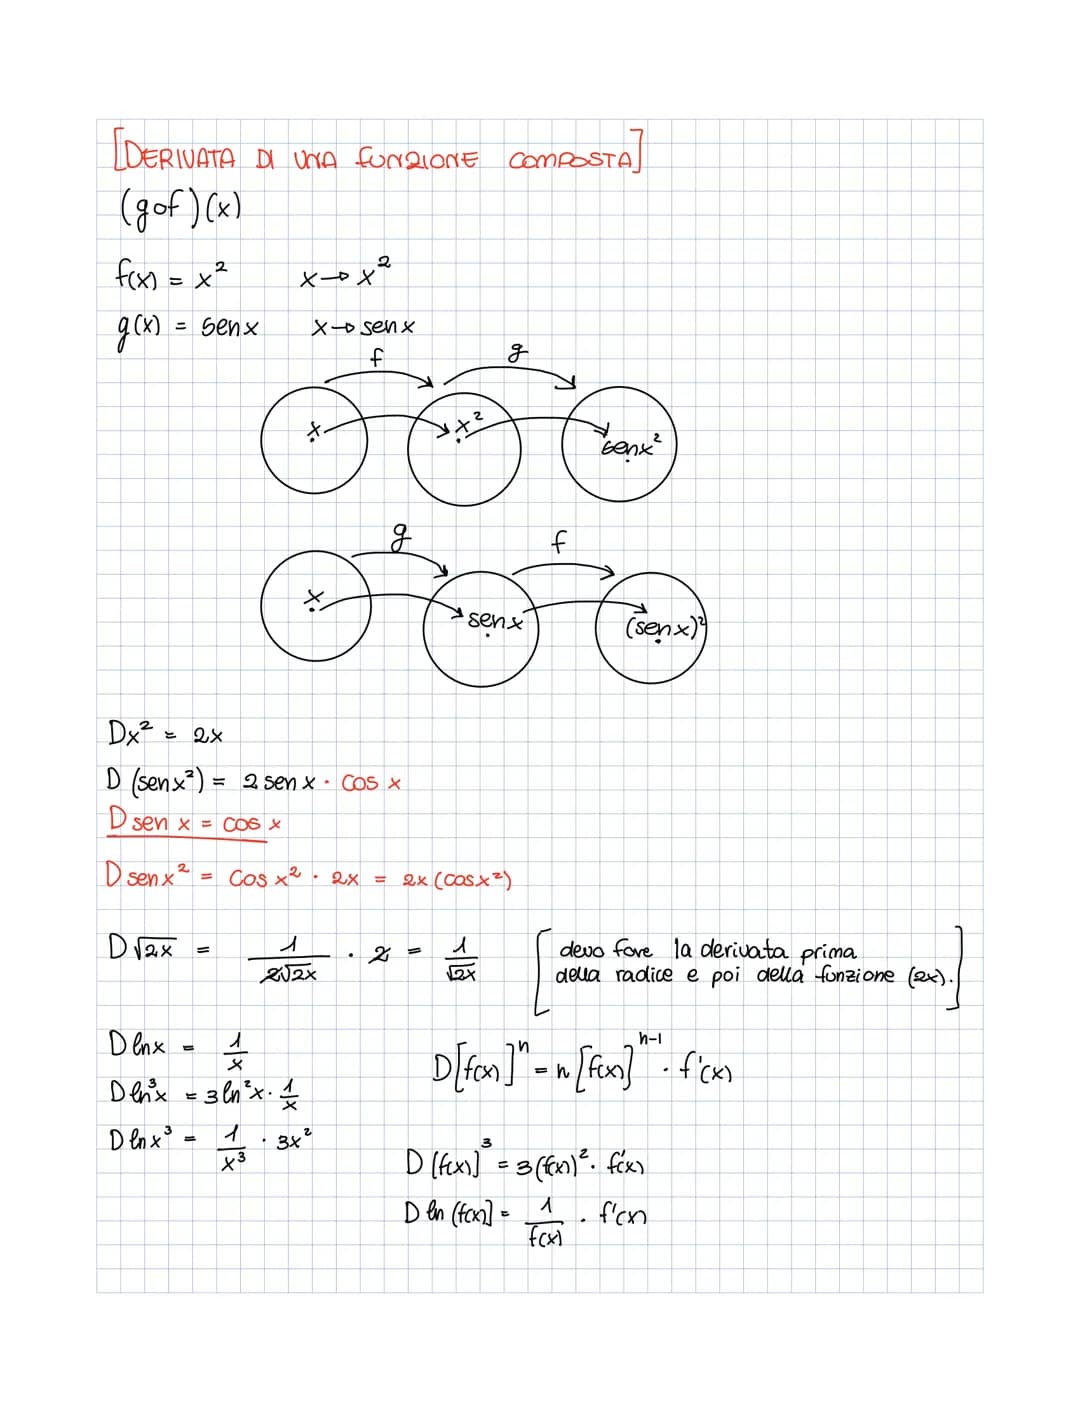 [DERIVATA DI UNA FUNZIONE COMPOSTA]
(gof)(x)
f(x) = x² x→x²
g(x) = senx x→senx
f g
x x² senx²
g f
x senx (senx)²
Dx² = 2x
D (senx²) = 2 sen x · cos x
D sen x = cos x
D senx² = Cos x² · 2x = 2x (cosx²)
D√2x = 1/2√2x · 2 = 1/√2x
[devo fare la derivata prima
della radice e poi della funzione (2x).]
D lnx = 1/x
D[f(x)]ⁿ = n [f(x)]ⁿ⁻¹ · f'(x)
D ln³x = 3 ln²x · 1/x
D lnx³ = 1/x³ · 3x²
D [f(x)]³ = 3(f(x))² · f'(x)
D ln (f(x)] = 1/f(x) · f'(x)